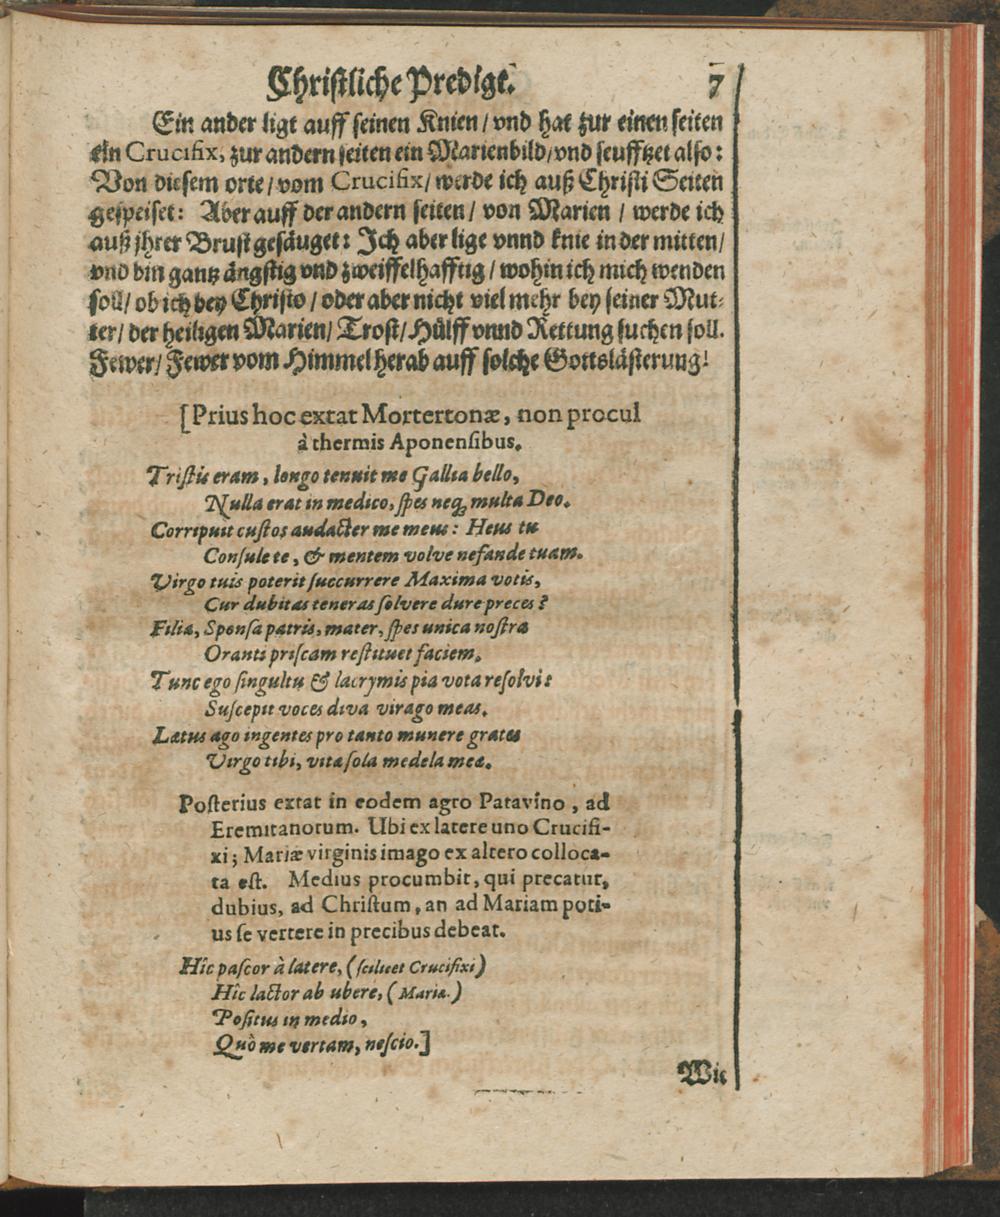 Christliche Predigt. 7
Ein ander ligt auff seinen Knien / vnd hat zur einen seiten
ein Crucifix, zur andern seiten ein Marienbild / vnd seufftzet also:
Von diesem orte / vom Crucifix / werde ich auß Christi Seiten
gespeiset: Aber auff der andern seiten / von Marien / werde ich
auß jhrer Brust gesäuget: Ich aber lige vnnd knie in der mitten /
vnd bin gantz ängstig vnd zweiffelhafftig / wohin ich mich wenden
soll / ob ich bey Christo / oder aber nicht viel mehr bey seiner Mut-
ter / der heiligen Marien / Trost / Hülff vnnd Rettung suchen soll.
Fewer / Fewer vom Himmel herab auff solche Gottslästerung!
[Prius hoc extat Mortertonæ, non procul
à thermis Aponensibus.
Tristis eram, longo tenuit me Gallia bello,
Nulla erat in medico, spes neq; multa Deo.
Corripuit custos audacter me meus: Heus tu
Consule te, & mentem volve nefande tuam.
Virgo tuis poterit succurrere Maxima votis,
Cur dubitas teneras solvere dure preces?
Filia, Sponsa patris, mater, spes unica nostra
Oranti priscam restituet faciem.
Tunc ego singultu & lacrymis pia vota resolvi:
Suscepit voces diva virago meas.
Lætus ago ingentes pro tanto munere grates
Virgo tibi, vitæ sola medela meæ.
Posterius extat in eodem agro Patavino, ad
Eremitanorum. Ubi ex latere uno Crucifi-
xi; Mariæ virginis imago ex altero colloca-
ta est. Medius procumbit, qui precatur,
dubius, ad Christum, an ad Mariam poti-
us se vertere in precibus debeat.
Hîc pascor à latere, (scilicet Crucifixi)
Hîc lactor ab ubere, (Mariæ.)
Positus in medio,
Quò me vertam, nescio.]
Wie